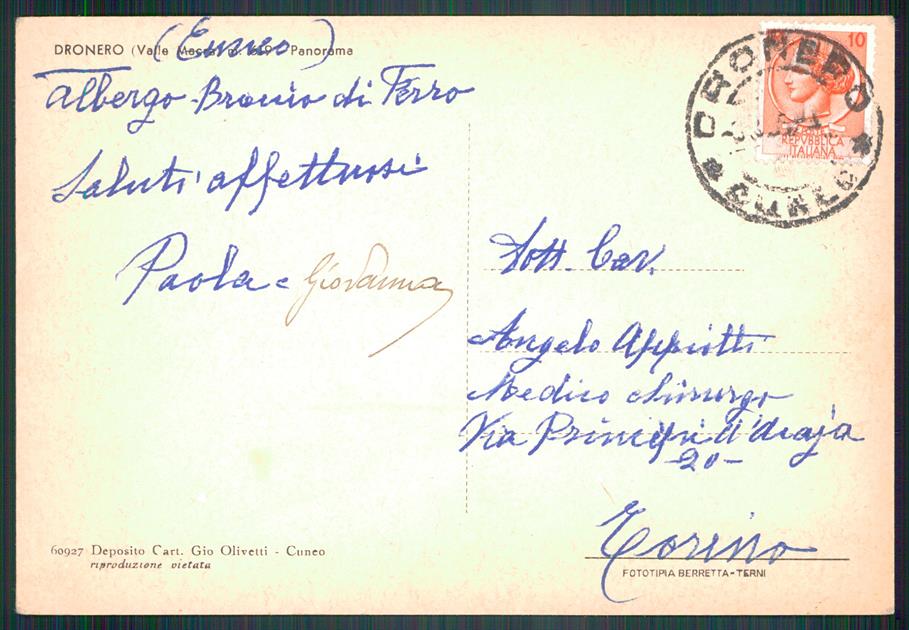 DRONERO (Valle Macra) m. 619 - Panorama
(Cuneo)
Albergo Braccio di Ferro
Saluti affettuosi
Paola e Giovanna
10
REPVBBLICA
ITALIANA
DRONERO
* CUNEO *
Dott. Cav.
Angelo Appiotti
Medico chirurgo
Via Principi d'Acaja
20-
Torino
60927 Deposito Cart. Gio Olivetti - Cuneo
riproduzione vietata
FOTOTIPIA BERRETTA - TERNI